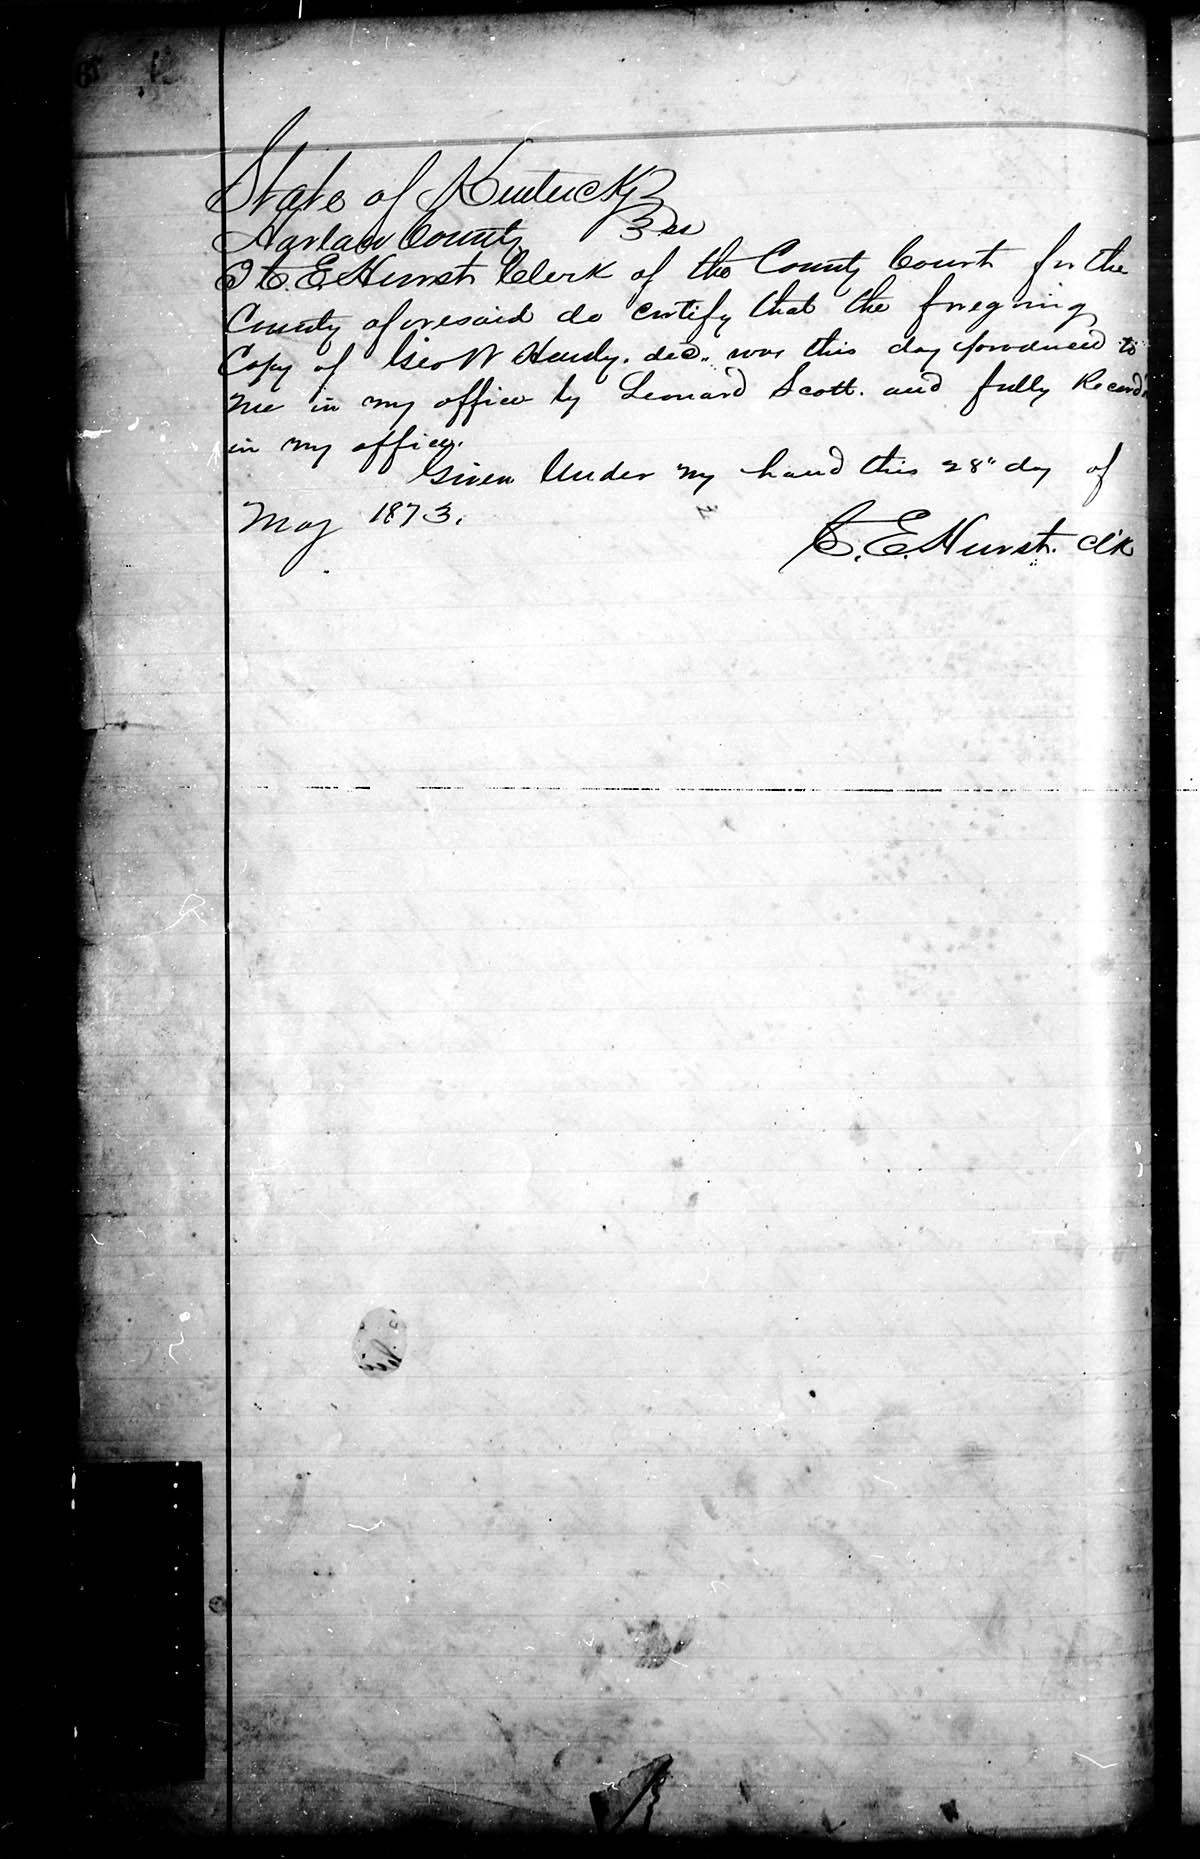 State of Kentucky
Harlan County
I C. E. Hurst Clerk of the County Court for the
County aforesaid do certify that the foregoing
Copy of Geo W dec.. was this day produced to
me in my office by Leonard Scott. and fully Record
in my office.
Given Under my hand this 28" day of
May 1873.
C. E. Hurst. Clk